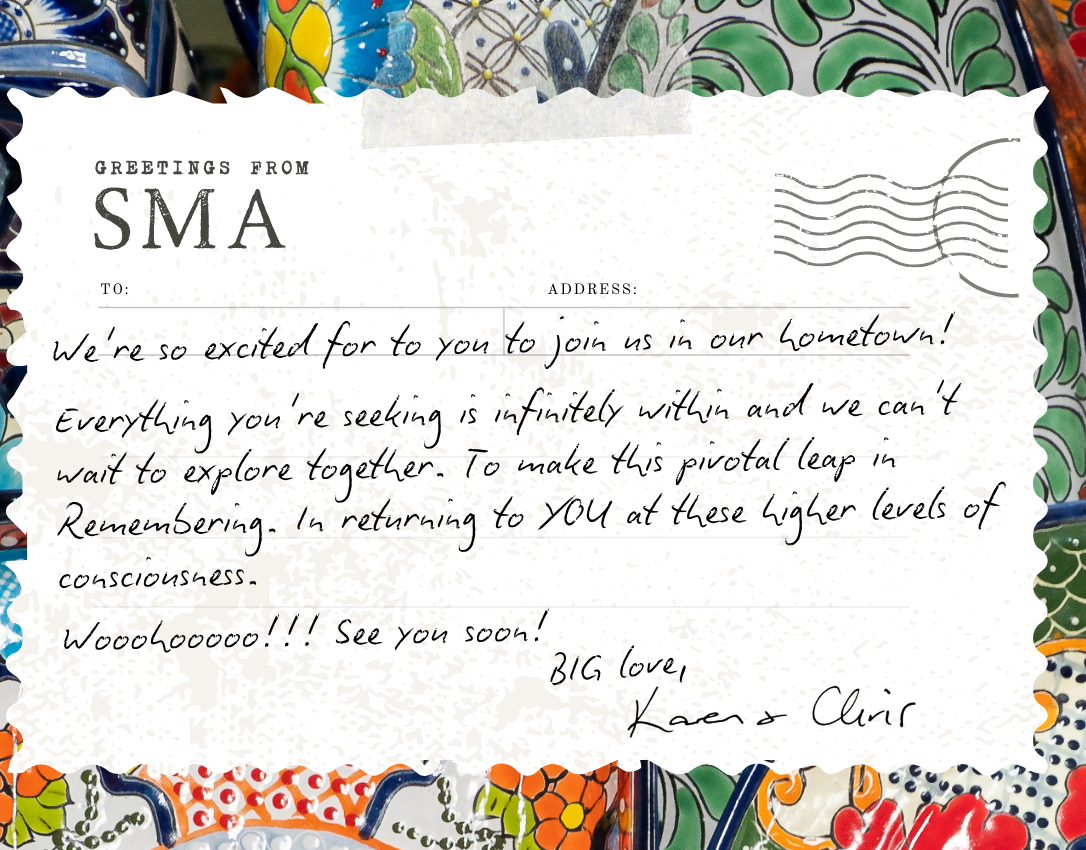 GREETINGS FROM
SMA
TO:
ADDRESS:
We're so excited for to you to join us in our hometown!
Everything you're seeking is infinitely within and we can't
wait to explore together. To make this pivotal leap in
Remembering. In returning to YOU at these higher levels of
consciousness.
Wooohooooo!!! See you soon!
BIG love,
Karen & Chris